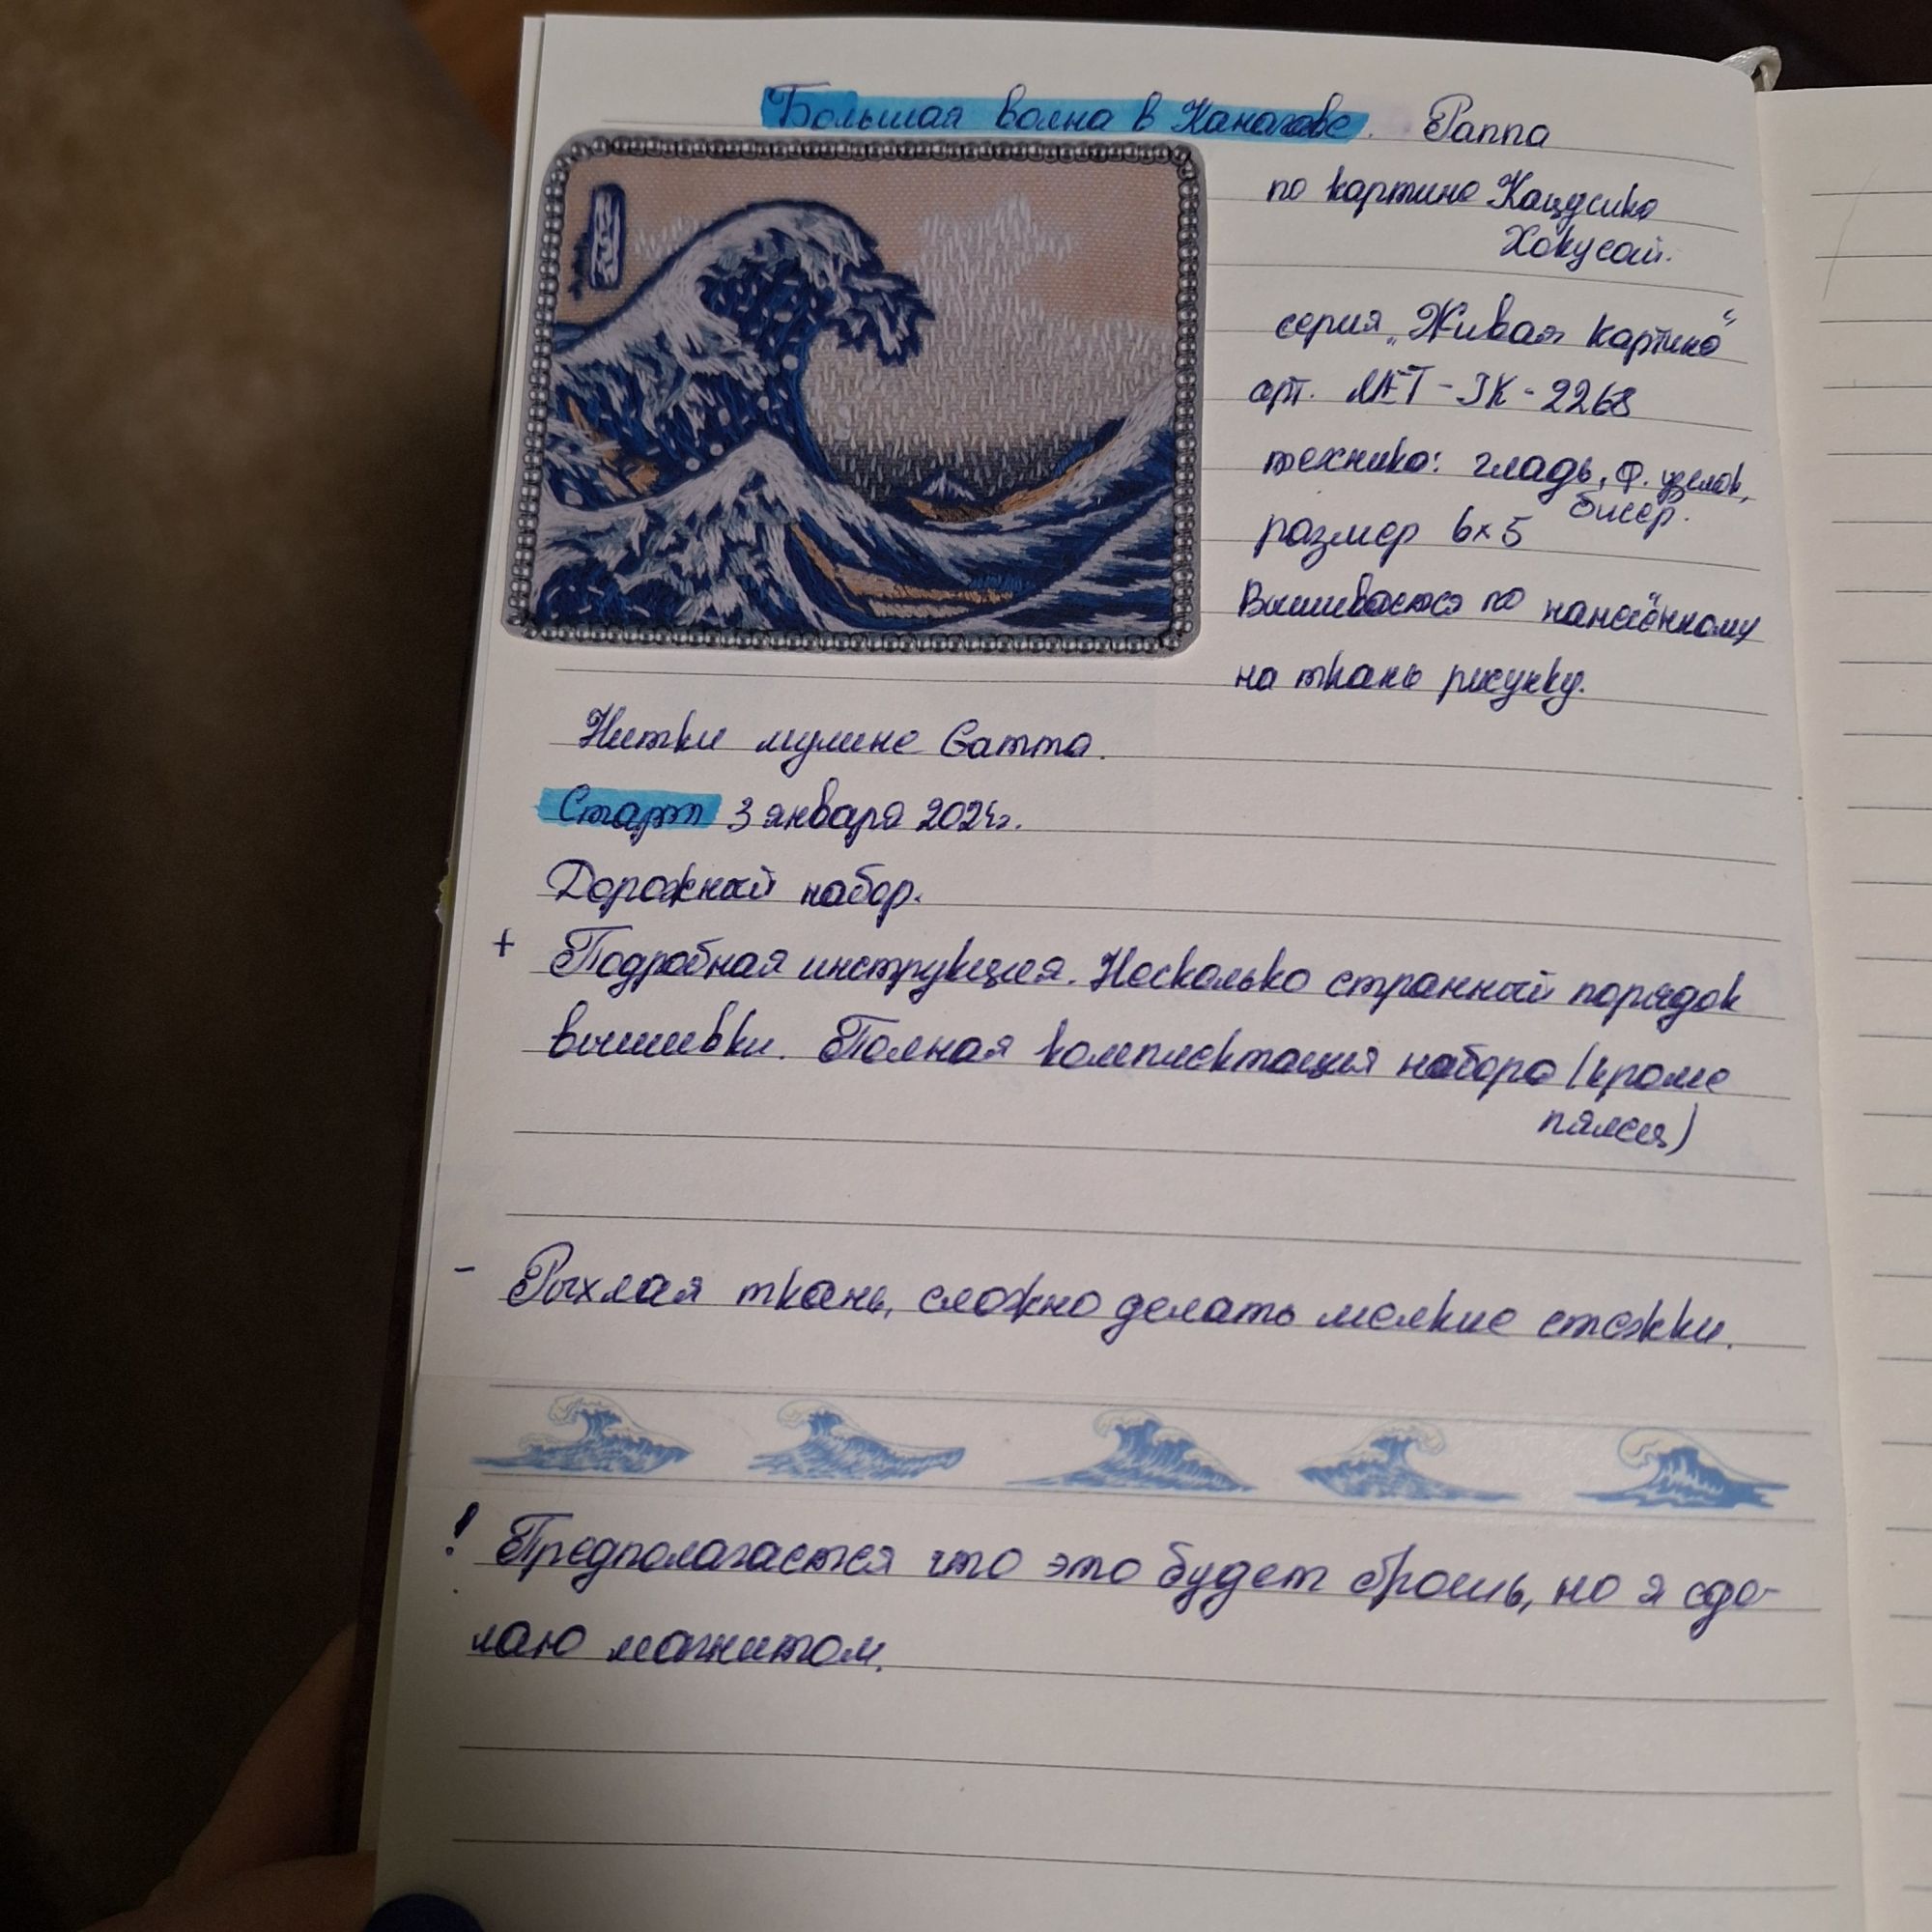 Большая волна в Канагаве. Panna
по картине Кацусика
Хокусай.
серия „Живая картина“
арт. МЕТ-JK-2268
техника: гладь, ф. узелок,
бисер.
размер 6x5
Вышивается по нанесённому
на ткань рисунку.
Нитки мулине Gamma.
Старт 3 января 2024г.
Дорожный набор.
+ Подробная инструкция. Несколько странный порядок
вышивки. Полная комплектация набора (кроме
пялец)
- Рыхлая ткань, сложно делать мелкие стежки.
! Предполагается что это будет брошь, но я сде-
лаю магнитом.